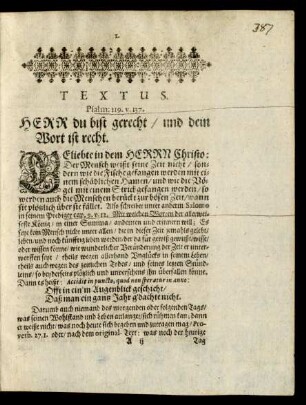 387
1.
TEXTUS.
Psalm: 119. v. 137.
HERR du bist gerecht / und dein
Wort ist recht.
GEliebte in dem HERRN Christo:
Der Mensch weißt seine Zeit nicht / son-
dern wie die Fische gefangen werden mit ei-
nem schädlichen Hamen / und wie die Vö-
gel mit einem Strick gefangen werden / so
werden auch die Menschen berückt zur bösen Zeit / wann
sie plötzlich über sie fället. Also schreibt unter andern Salomo
in seinem Prediger cap. 9. v. 12. Mit welchen Worten der allerwei-
seste König / in einer Summa / andeuten und erinnern will; Es
seye kein Mensch nicht unter allen / die in dieser Zeit jemahls gelebt /
leben und noch künfftig leben werden / der da hat gewiß gewust / wisse /
oder wissen könne / wie wunderliche Veränderung der Zeit er unter-
worffen seye / theils wegen allerhand Unglücks in seinem Leben /
theils auch wegen des zeitlichen Todes / und seines letzen Sünd-
leins / so beydes uns plötzlich und unversehens ihn überfallen könne.
Dann es heist: Accidit in puncto, quod non speratur in anno:
Offt in ein'm Augenblick geschicht /
Daß man ein gantz Jahr g'dachte nicht.
Darumb auch niemand des morgenden oder folgenden Tags /
was seinen Wohlstand und Leben anlanget / sich rühmen kan; dann
er weißt nicht / was noch heute sich begeben und zutragen mag / Pro-
verb. 27. 1. oder / nach dem original-Text: was noch der heutige
A ij
Tag